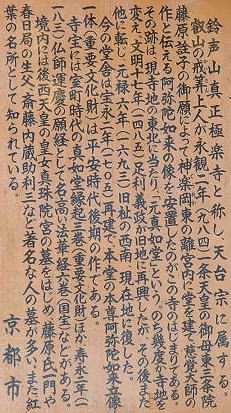 鈴声山真正極楽寺と称し、天台宗に属する。
叡山の戒算上人が永観二年(九八四)一条天皇の御母東三条院
藤原詮子の御願によって神楽岡東の離宮内に堂を建て慈覚大師の
作と伝える阿弥陀如来の像を安置したのがこの寺のはじまりである。
その跡は現寺地の東北に当たり、「元真如堂」という。のち幾度か寺地を
変え、文明十七年(一四八五)足利義政が旧地に再興したが、その後また
他に転じ元禄六年(一六九三)旧社の西南、現在地に復した。
今の堂舎は宝永二年(一七〇五)再建で、本堂の本尊阿弥陀如来立像
一体(重要文化財)は平安時代後期の作である。
寺宝には室町時代の真如堂縁起三巻(重要文化財)ほか寿永二年(一
一八三)仏師運慶の願経として名高い法華経六巻(国宝)などがある。
境内には後西天皇の皇女真珠院宮の墓をはじめ、藤原氏一門や
春日局の生父、斎藤内蔵助利三など著名な人の墓が多い。また紅
葉の名所として知られている。
京都市